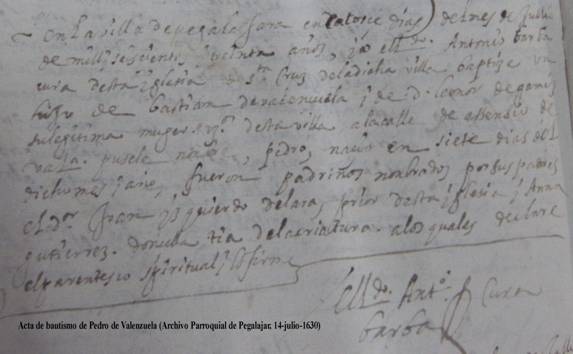 en la villa de pegalaxara en catorce dias del mes de Jullio
de mill y seiscientos y treinta años, yo el Ldo. Antonio barba
cura desta yglesia de sta Cruz de la dicha villa baptize un
hijo de bastian de valençuela y de d. leonor de
su legitima muger vos. desta villa a la calle de
pusele nonbre, pedro, nacio en siete dias del
dicho mes y año, fueron padrinos nonbrados por sus padres
el dor. fran yzquierdo de lara, prior desta yglesia y Anna
gutierrez donzella tia de la criatura a los quales declare
el parentesco spiritual y lo firme
el Ldo. Anto. Cura
barba
Acta de bautismo de Pedro de Valenzuela (Archivo Parroquial de Pegalajar. 14-julio-1630)